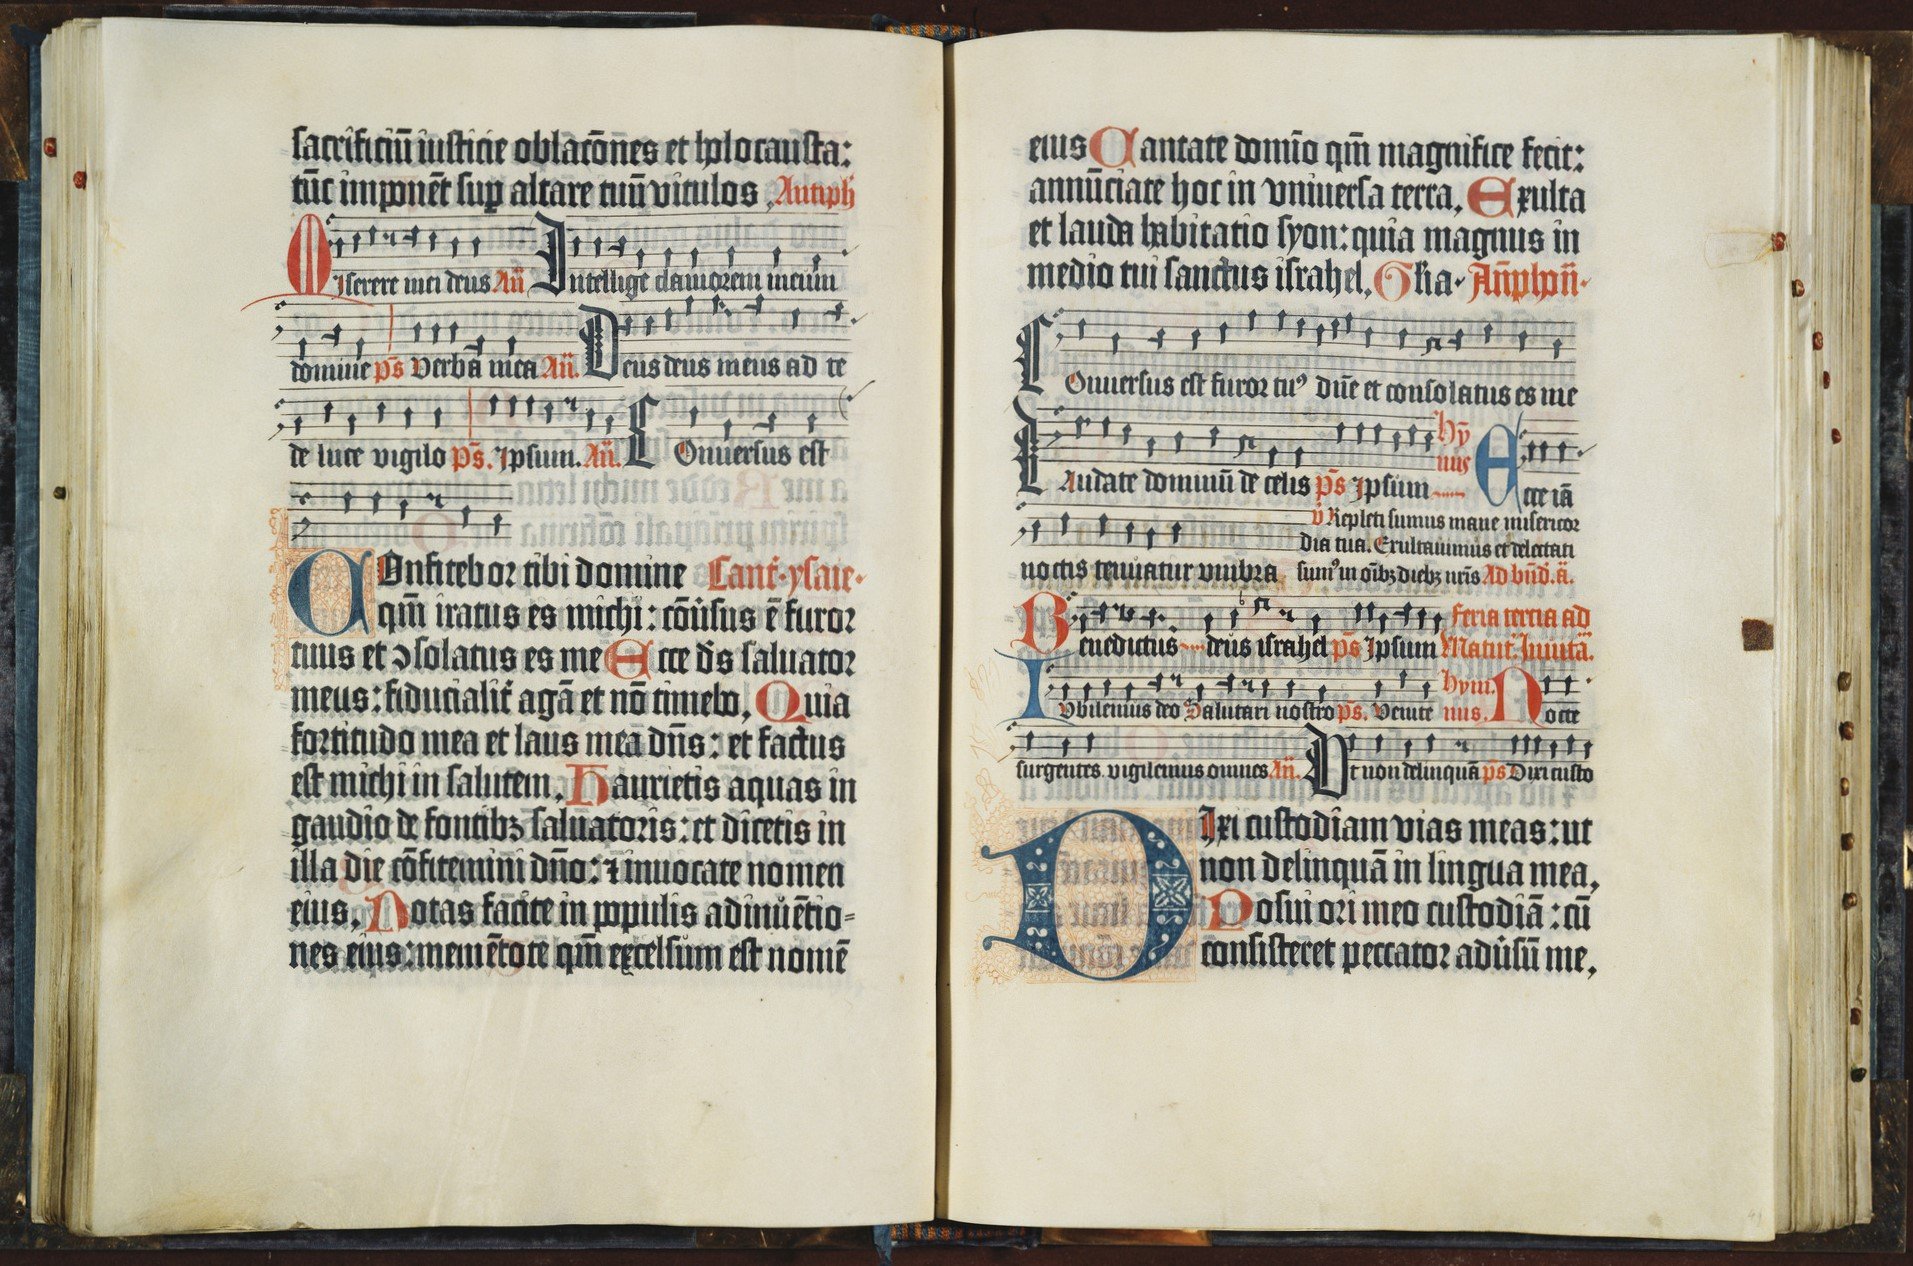 sacrificiū iusticie oblacōnes et holocausta:
tūc imponēt sup altare tuū vitulos, Antiph
Miserere mei deus Añ Intellige clamorem meum
domine p̄s Verba mea Añ. Deus deus meus ad te
de luce vigilo p̄s. Ipsum. Añ. Conuersus est
Confitebor tibi domine Cant. ysaie.
qm̄ iratus es michi: cōu̇sus ē furor
tuus et ꝯsolatus es me Ecce ds̄ saluator
meus: fiducialit̄ agā et nō timebo, Quia
fortitudo mea et laus mea dn̄s: et factus
est michi in salutem, Haurietis aquas in
gaudio de fontibꝫ saluatoris: et dicetis in
illa die cōfitemini dn̄o: ⁊ inuocate nomen
eius, Notas facite in populis adinuētio=
nes eius: memētote qm̄ excelsum est nomē
eius Cantate domīo qm̄ magnifice fecit:
annūciate hoc in vniuersa terra, Exulta
et lauda habitatio syon: quia magnus in
medio tui sanctus israhel, Gl̄ia. Añphoñ.
Conuersus est furor tuꝰ dūe et consolatus es me
Laudate dominū de celis p̄s Ipsum hȳ
nus Ecce iā
noctis tenuatur vmbra
v̄ Repleti sumus mane misericor
dia tua. Exultauimus et delectati
sumꝰ in oībꝫ diebꝫ nr̄is Ad bn̄d. ā.
Benedictus deus israhel p̄s Ipsum feria tercia ad
Matut. Inuitā.
Iubilemus deo Salutari nostro p̄s. Venite hym-
nus. Nocte
surgentes vigilemus omnes Añ. Vt non delinquā p̄s Dixi custo
Dixi custodiam vias meas: ut
non delinquā in lingua mea,
Posui ori meo custodiā: cū
consisteret peccator adu̇sū me,
41